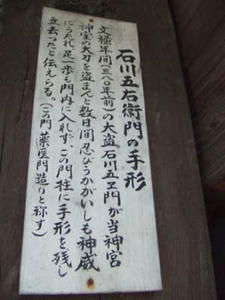 石川五右衛門の手形
文禄年間(三八〇年前)の大盗石川五ヱ門が当神宮
神宝の大刀を盗まんと数日間忍びうかがいしも神威
にうたれ足一歩も門内に入れず、この門柱に手形を残し
立去ったと伝えらる。(この門薬医門造りと称す)